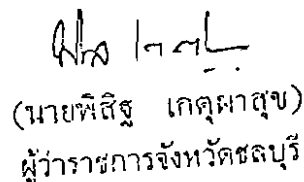 (นายพิสิฐ เกตุผาสุข)
ผู้ว่าราชการจังหวัดชลบุรี